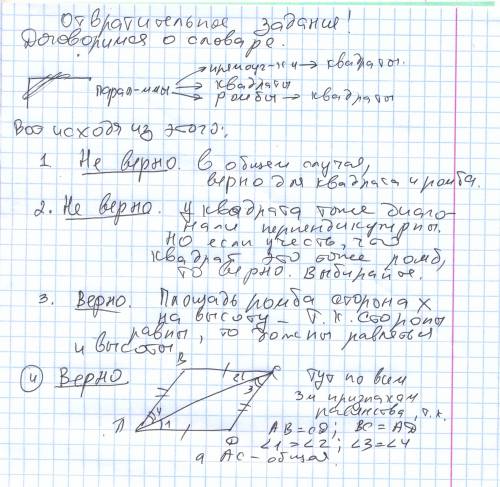 Отвратительное задание!
Договоримся о словаре.
прямоуг-ки → квадраты.
парал-ммы → квадраты
ромбы → квадраты
Вот исходя из этого:
1. Не верно. В общем случая,
верно для квадрата и ромба.
2. Не верно. У квадрата тоже диаго-
нали перпендикулярны.
Но если учесть, что
квадрат это тоже ромб,
то верно. Выбирайте.
3. Верно. Площадь ромба сторона х
на высоту – т.к. стороны
равны, то должны равняться
и высоты
4 Верно
B C
2 3
4 1
A D
Тут по всем
3м признакам
равенства, т.к.
AB=CD; BC=AD
∠1=∠2; ∠3=∠4
а AC – общая.